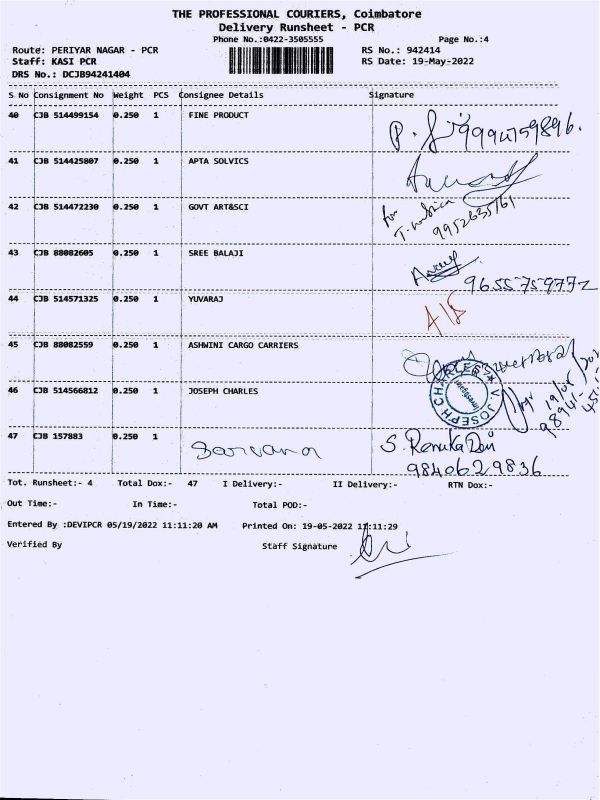 THE PROFESSIONAL COURIERS, Coimbatore
Delivery Runsheet - PCR
Phone No.:0422-3505555 Page No.:4
Route: PERIYAR NAGAR - PCR RS No.: 942414
Staff: KASI PCR RS Date: 19-May-2022
DRS No.: DCJB94241404
S No Consignment No Weight PCS Consignee Details Signature
40 CJB 514499154 0.250 1 FINE PRODUCT
9994759896.
41 CJB 514425807 0.250 1 APTA SOLVICS
42 CJB 514472230 0.250 1 GOVT ART&SCI for
9952635761
43 CJB 88082605 0.250 1 SREE BALAJI
9655759772
44 CJB 514571325 0.250 1 YUVARAJ
45 CJB 88082559 0.250 1 ASHWINI CARGO CARRIERS
46 CJB 514566812 0.250 1 JOSEPH CHARLES
V. JOSEPH CHARLES
47 CJB 157883 0.250 1 Sarvana S. Renuka Devi
9840629836
Tot. Runsheet:- 4 Total Dox:- 47 I Delivery:- II Delivery:- RTN Dox:-
Out Time:- In Time:- Total POD:-
Entered By :DEVIPCR 05/19/2022 11:11:20 AM Printed On: 19-05-2022 11:11:29
Verified By Staff Signature